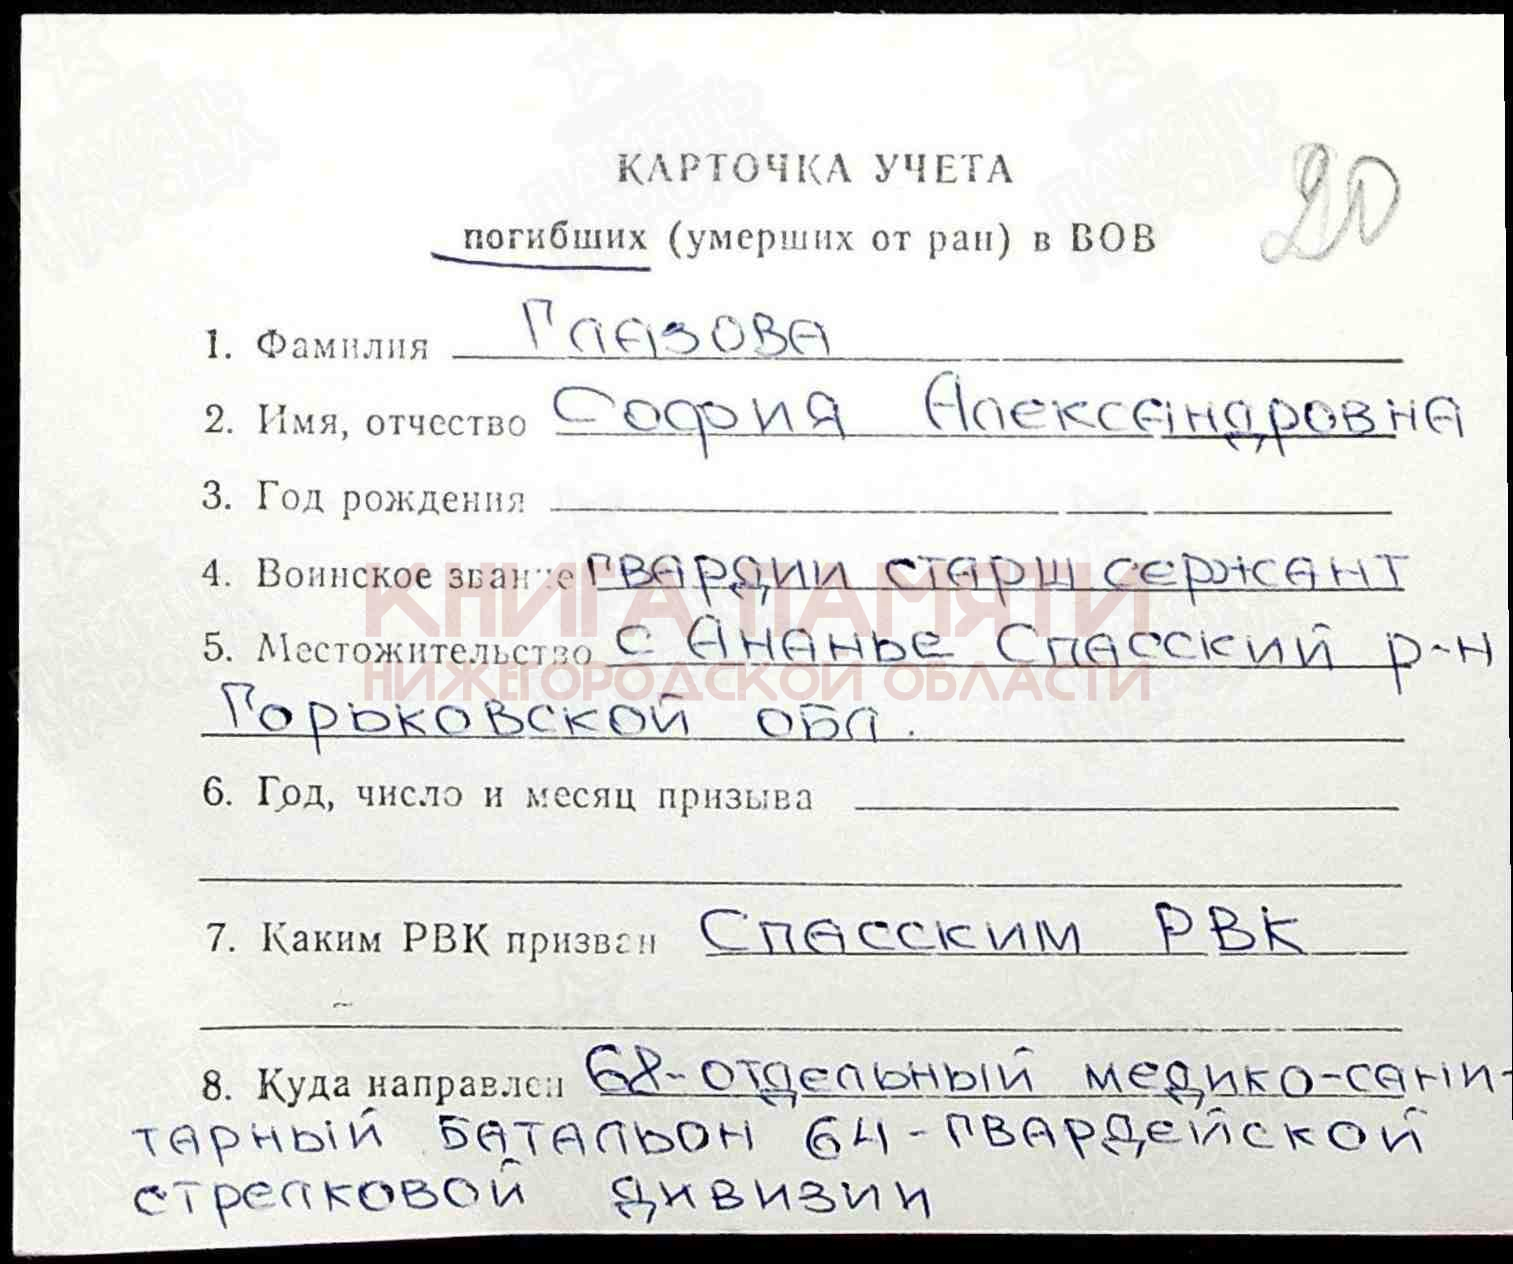 КАРТОЧКА УЧЕТА
20
погибших (умерших от ран) в ВОВ
1. Фамилия Глазова
2. Имя, отчество София Александровна
3. Год рождения
4. Воинское звание гвардии старш сержант
КНИГА ПАМЯТИ
5. Местожительство с Ананье Спасский р-н
НИЖЕГОРОДСКОЙ ОБЛАСТИ
Горьковской обл.
6. Год, число и месяц призыва
7. Каким РВК призван Спасским РВК
8. Куда направлен 68-отдельный медико-сани-
тарный батальон 64-гвардейской
стрелковой дивизии